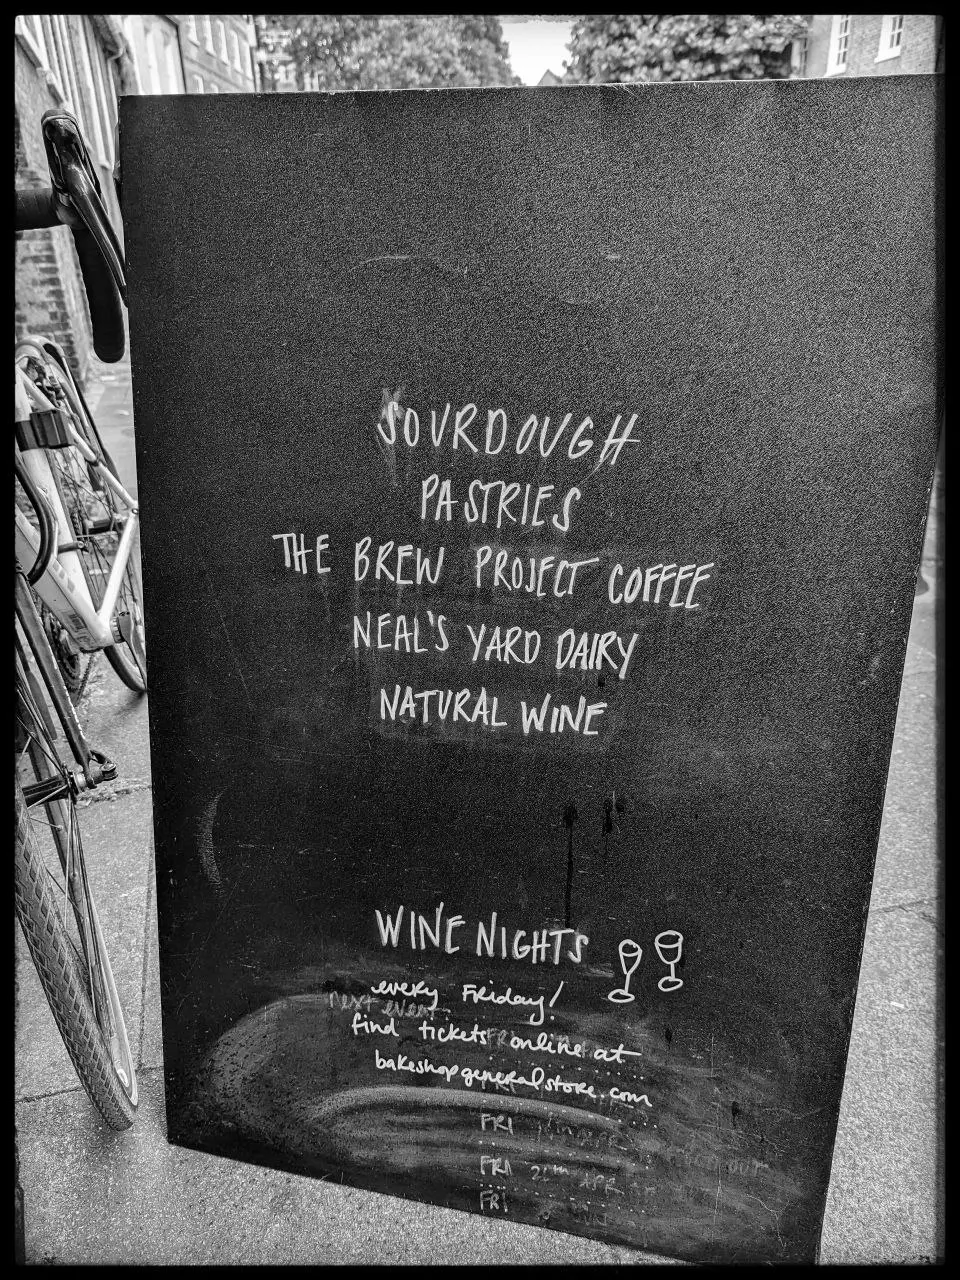 SOURDOUGH
PASTRIES
THE BREW PROJECT COFFEE
NEAL'S YARD DAIRY
NATURAL WINE
WINE NIGHTS
every Friday!
next event
find tickets online at
bakeshopgeneralstore.com
FRI
FRI APR
FRI